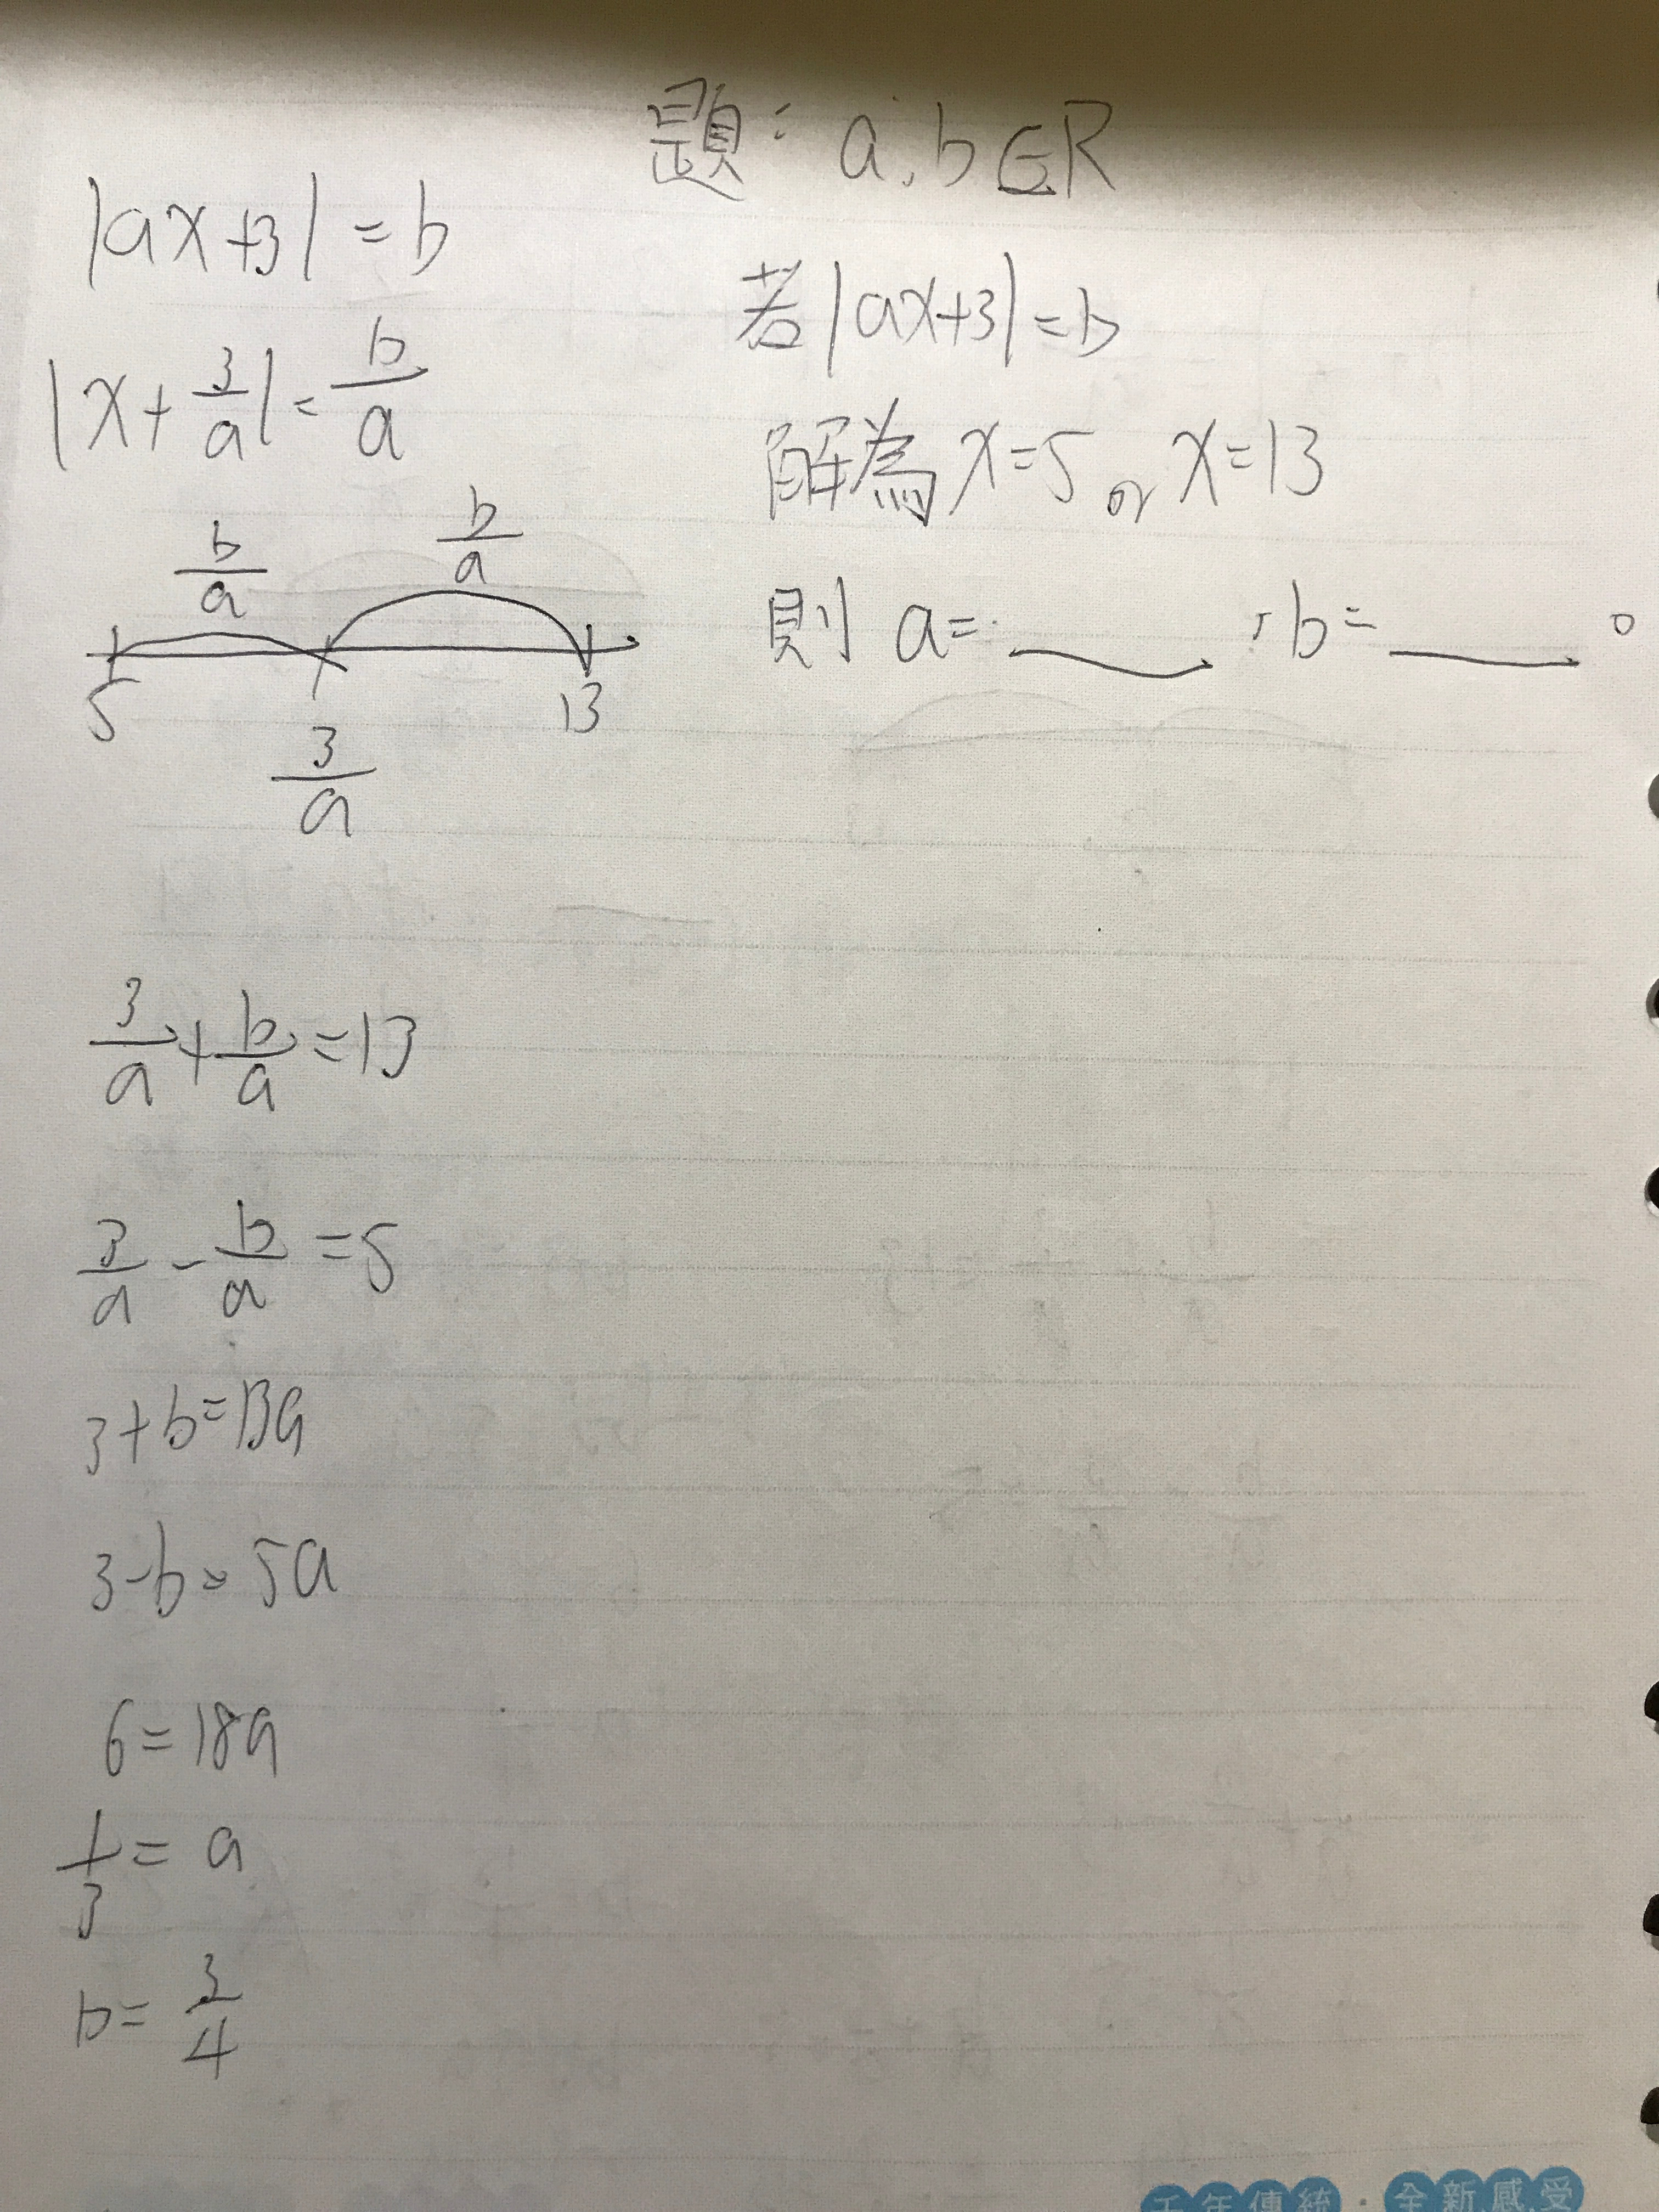 題：a,b∈R
若|ax+3|=b
解為 x=5 or x=13
則 a=____，b=____。
|ax+3|=b
|x+3/a|=b/a
b/a b/a
5 13
3/a
3/a+b/a=13
3/a-b/a=5
3+b=13a
3-b=5a
6=18a
1/3=a
b=3/4
千年傳統·全新感受